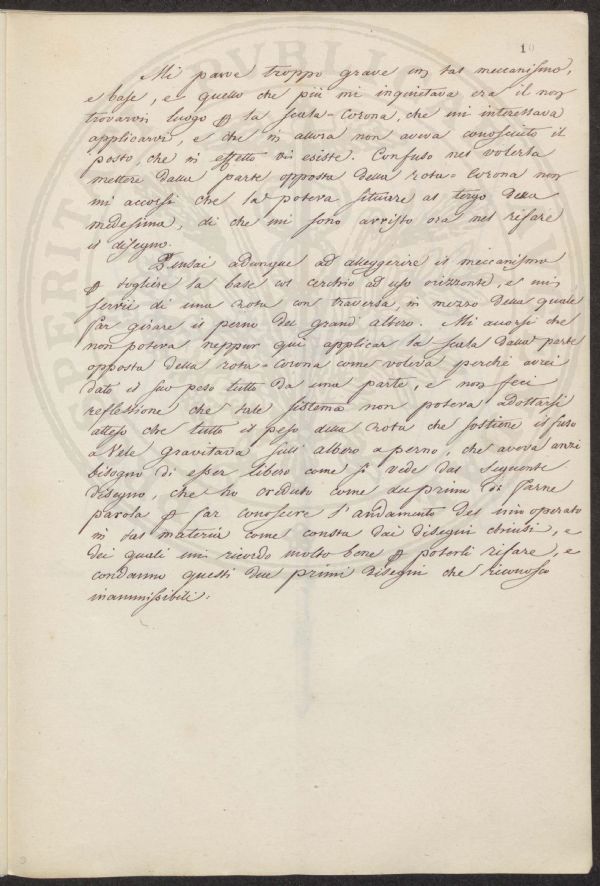 10
Mi parve troppo grave un tal meccanismo,
e base, e quello che più mi inquietava era il non
trovarvi luogo per la scala-corona, che mi interessava
applicarvi, e che in allora non aveva conosciuto il
posto, che in effetto vi esiste. Confuso nel volerla
mettere dalla parte opposta della rota-corona non
mi accorsi che la poteva situare al tergo della
medesima, di che mi sono avvisto ora nel rifare
il disegno.
Pensai adunque ad alleggerire il meccanismo
per togliere la base col cerchio ad uso orizzonte, e mi
servii di una rota con traversa, in mezzo della quale
far girare il perno del grand'albero. Mi accorsi che
non poteva neppur qui applicar la scala dalla parte
opposta della rota-corona come voleva perchè avrei
dato il suo peso tutto da una parte, e non feci
reflessione che tale sistema non poteva adottarsi
atteso che tutto il peso della rota che sostiene il fuso
a vele gravitava sull'albero a perno, che aveva anzi
bisogno di esser libero come si vede dal seguente
disegno, che ho creduto come due primi di farne
parola per far conoscere l'andamento del mio operato
in tal materia come consta dai disegni chiusi, e
dei quali mi ricordo molto bene per poterli rifare, e
condanno questi due primi disegni che riconosco
inammissibili.
PVBLICA
PERIT